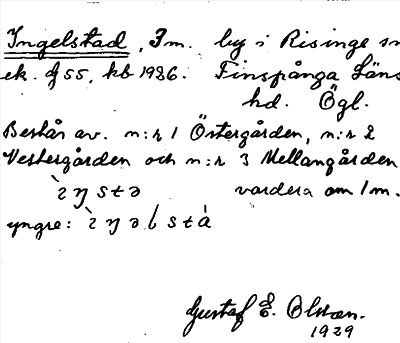 Ingelstad, 3 m. by i Risinge sn
ek. bl 55, hb 1986. Finspånga Läns
hd. Ögl.
Består av. n:r 1 Östergården, n:r 2
Vestergården och n:r 3 Mellangården
ìŋstə vardera om 1 m.
yngre: ìŋəlstà
Gustaf E. Olsson.
1929